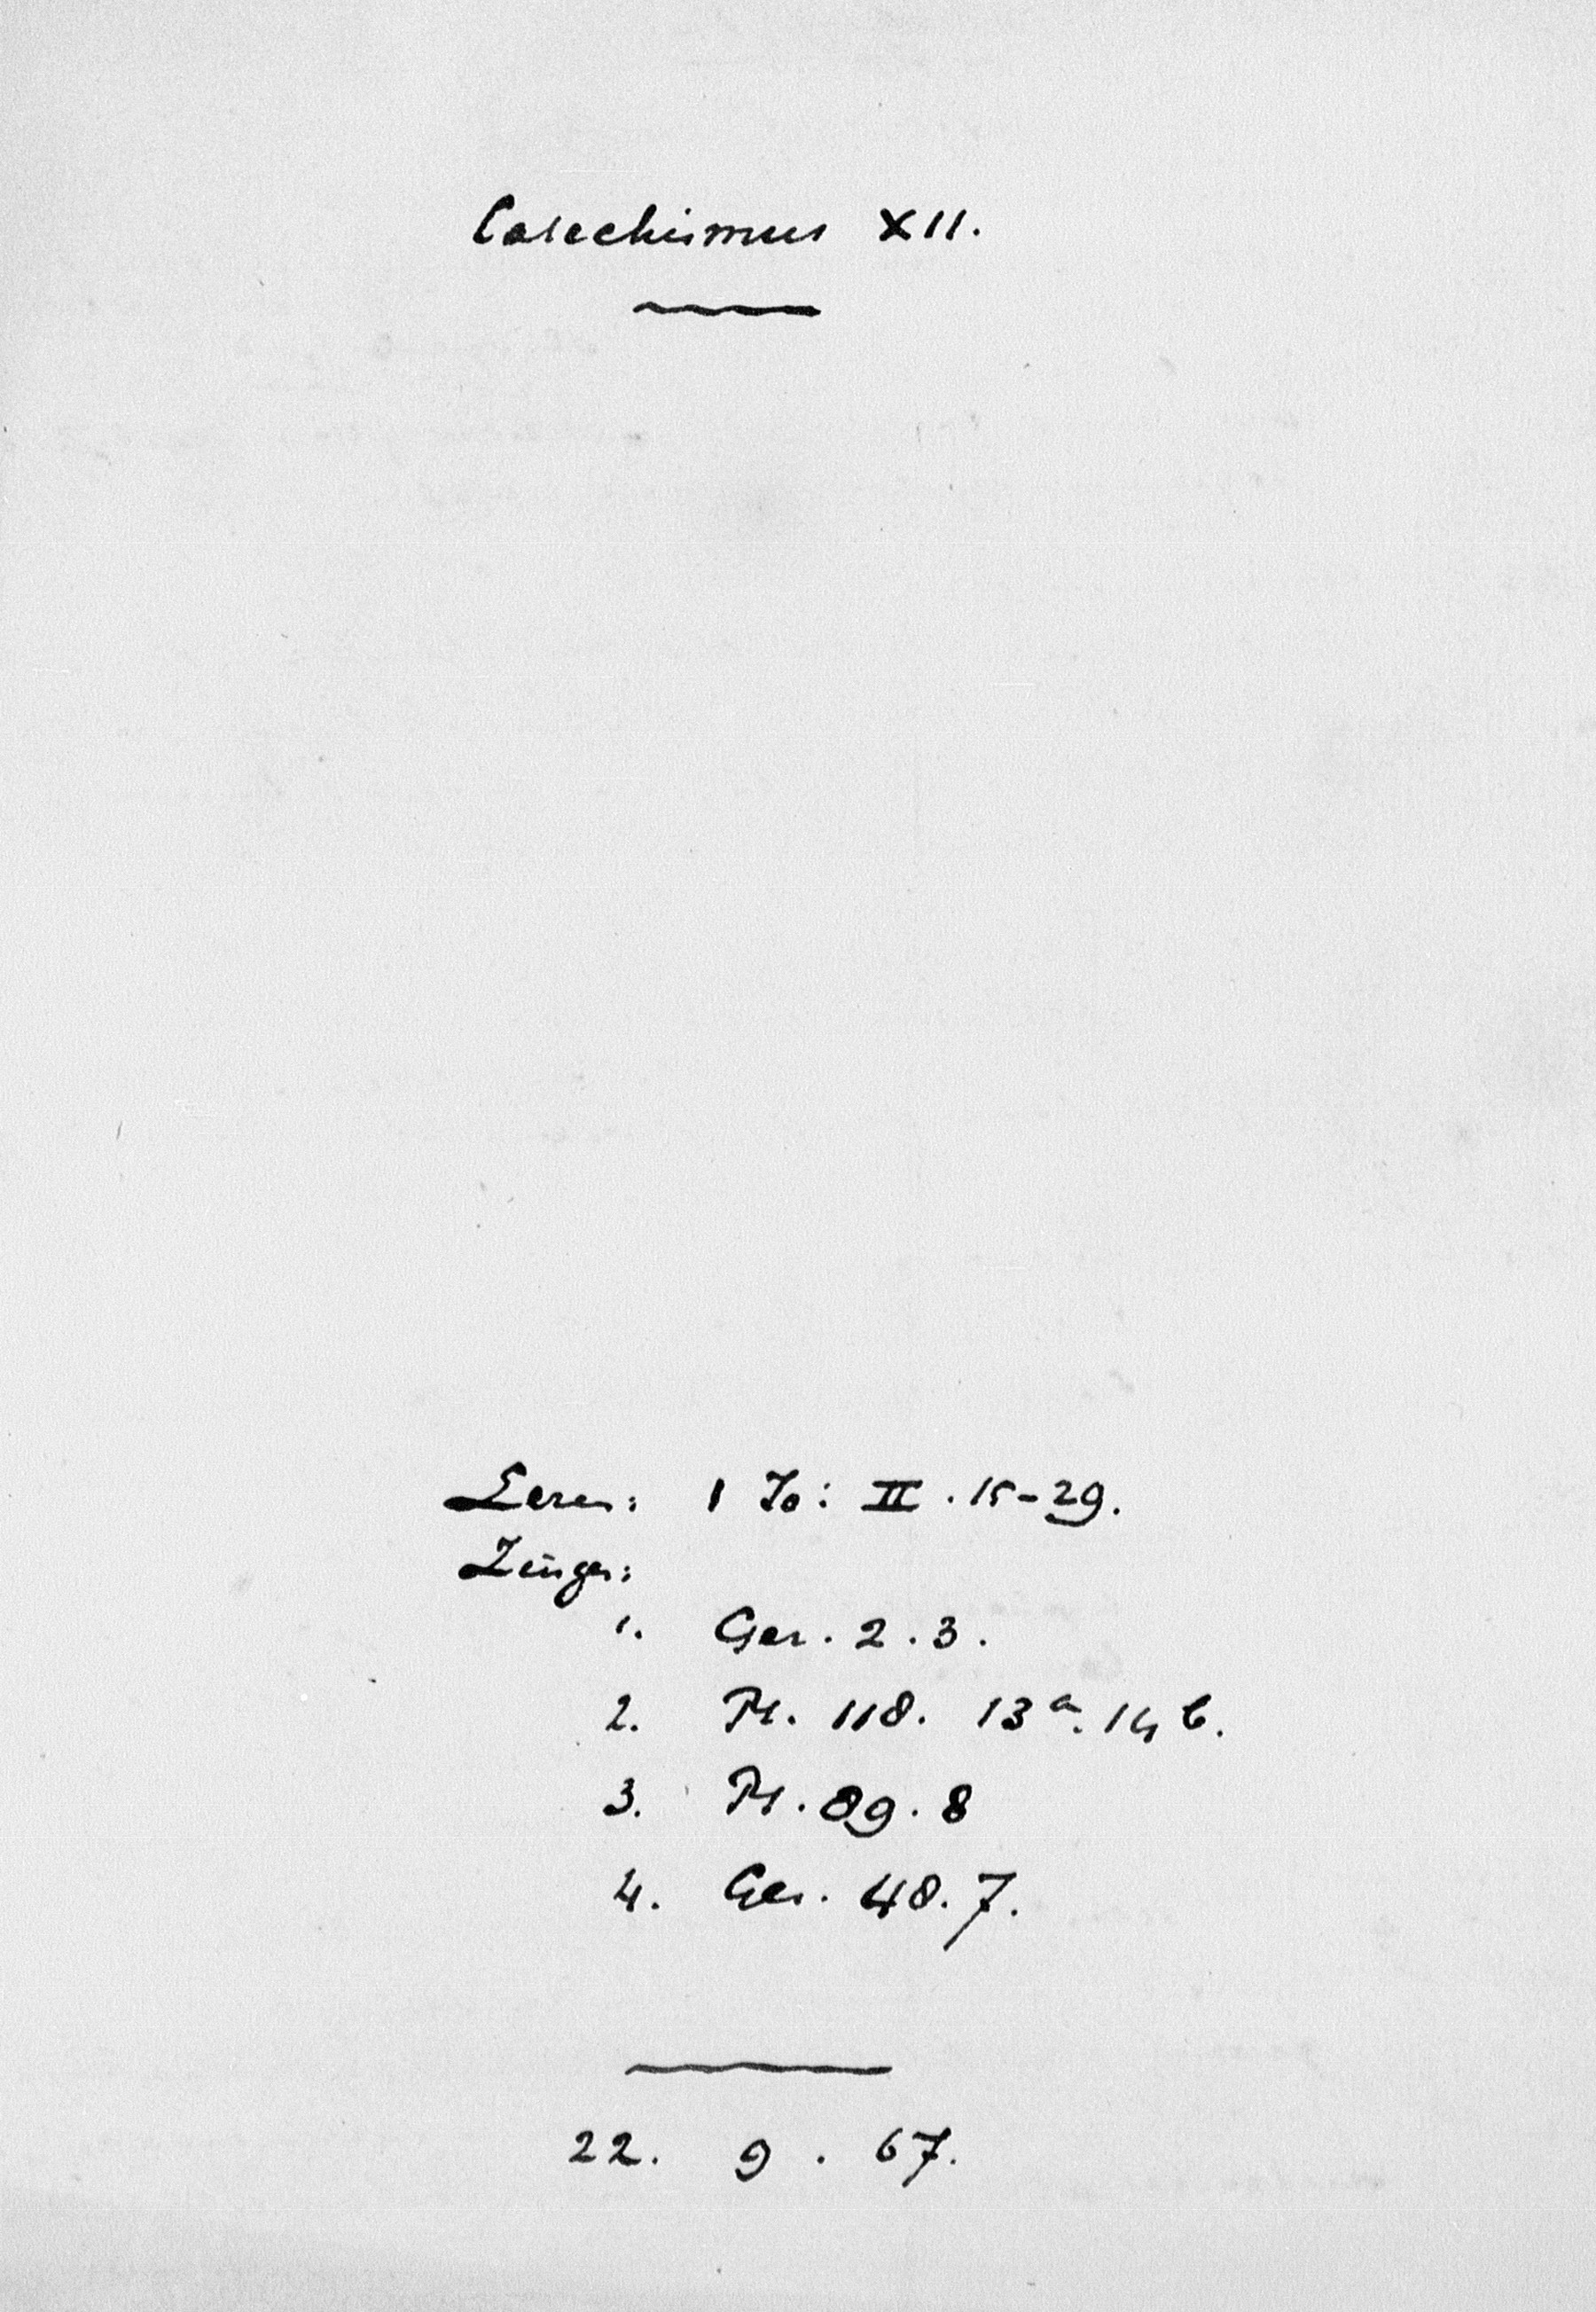 Catechismus XII.
Lezen: 1 Jo: II. 15-29.
Zingen:
1. Gez. 2. 3.
2. Ps. 118. 13a. 14b.
3. Ps. 89. 8
4. Gez. 48. 7.
22. 9. 67.